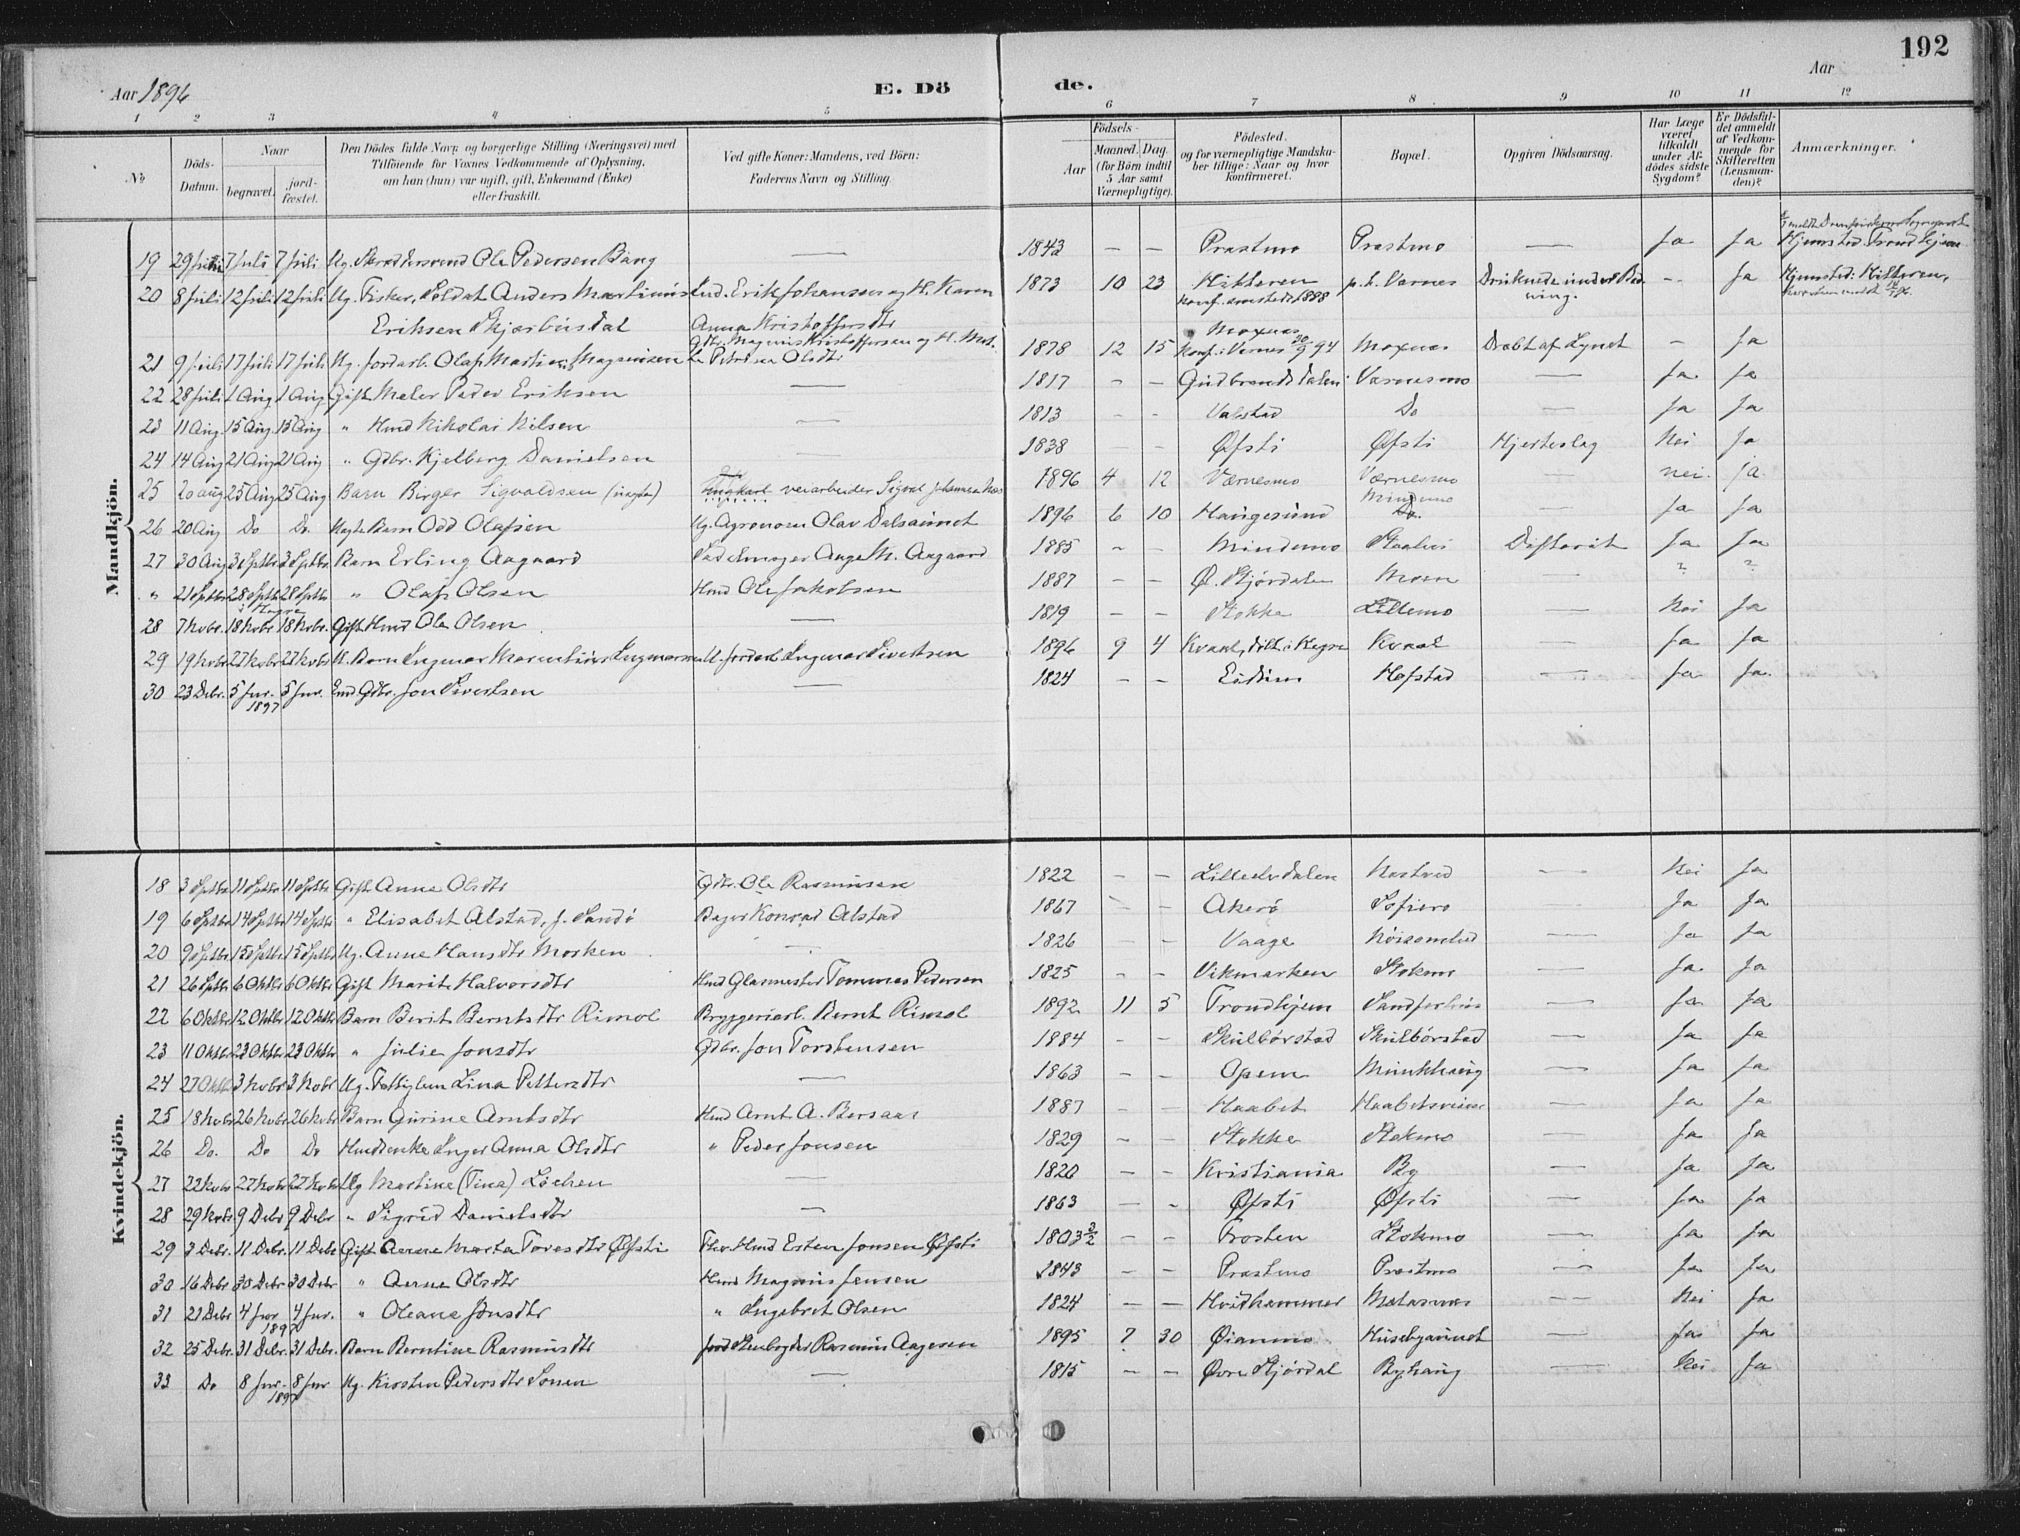 192
Aar 1896 E. Dö de. Aar
1 2 3 4 5 6 7 8 9 10 11 12
No
Döds-Datum.
Naar
begravet.
jordfæstet.
Den Dödes fulde Navn og borgerlige Stilling (Næringsvei) med
Tilföiende for Voxnes Vedkommende af Oplysning,
om han (hun) var ugift, gift, Enkemand (Enke)
eller fraskilt.
Ved gifte Koner: Mandens, ved Börn:
Faderens Navn og Stilling.
Födsels-
Aar
Maaned. Dag.
(for Börn indtil
5 Aar samt
Værnepligtige).
Födested,
og for værnepligtige Mandskaber
tillige: Naar og hvor
konfirmeret.
Bopæl.
Opgiven Dödsaarsag.
Har Læge
været
tilkaldt
under Afdödes
sidste
Sygdom?
Er Dödsfaldet
anmeldt
af Vedkommende
for
Skifteretten
(Lensmanden)?
Anmærkninger.
Mandkjön.
19 29 Juni 7 Juli 7 Juli Ug. Skræddersvend Ole Pedersen Bang — 1843 — — Prestmo Prestmo — Ja Ja Hjemsted Trondhjem
20 8 Juli 12 Juli 12 Juli Ug. Fisker, Soldat Anders Martinus Ind. Erik Johansen og H. Karen 1873 10 23 Hitteren p.t. Værnes Druknede under Badning. - Ja Hjemsted: Hitteren,
Eriksen Skjærbusdal Anna Kristoffersdtr Konf. 1888
21 9 Juli 17 Juli 17 Juli Ug. Jordarb. Olaf Martin Magnussen Gdbr. Magnus Kristoffersen og H. Petrine Olsdtr 1878 12 15 Moxnes Konf. i Værnes 30/9 94 Moxnes Dræbt af Lynet - Ja
22 28 Juli 1 Aug 1 Aug Gift Maler Peder Eriksen — 1817 - - Gudbrandsdalen Værnesmo — Ja Ja
23 11 Aug. 15 Aug. 15 Aug " Hmd Nikolai Nilsen — 1813 - - Valstad Do — Ja Ja
24 14 Aug 21 Aug 21 Aug " Gdbr. Kjelberg Danielsen 1838 - Øfsti Øfsti Hjerteslag Nei Ja
25 20 aug 25 Aug 25 Aug Barn Birger Sigvaldsen (uægte) Ungkarl veiarbeider Sigval Johannesen 1896 4 12 Værnesmo Værnesmo — nei. ja
26 20 Aug Do Do. Uægte Barn Odd Olafsen Ug. Agronom Olav Dalsaunet 1896 6 10 Haugesund Mindemo Do. — Ja Ja
27 30 Aug 3 Septbr 3 Septbr Barn Erling Aagaard Sadelmager Aage M. Aagaard 1885 - - Mindemo Difterit Ja Ja
" 21 Septbr 28 Septbr 28 Septbr " Olaf Olsen Hmd Ole Jakobsen 1887 - - Ø. Stjørdalen Moen — ? ?
i Hegre
28 7 Novbr. 18 Novbr 18 Novbr. Gift Hmd Ole Olsen — 1819 — — Stokke Lillemo — Nei Ja
29 19 Novbr 27 Novbr 27 Novbr U. Barn Ingmar Marentius Ingmarsen U. Jordarb Ingmar Sivertsen 1896 9 4 Kvaal, døbt i Hegre Kvaal — Ja Ja
30 23 Debr. 5 Jnr. 1897 5 Jnr. Emd Gdbr. Jon Sivertsen — 1824 - - Eidum Hofstad — Ja Ja
Kvindekjön.
18 3 Septbr 11 Septbr 11 Septbr Gift Anne Olsdtr Gdbr. Ole Rasmussen 1822 - - Lillerdalen — Nei Ja
19 6 Septbr 14 Septbr 14 Septbr " Elisabet Alstad, f. Sandø Bager Konrad Alstad 1867 - - Akerø Sofiero — Ja Ja
20 9 Septbr 15 Septbr 15 Septbr Ug. Anne Hansdtr Morken — 1826 - - Vaage Nøisomhed — Ja Ja
21 26 Septbr 6 Oktbr 6 Oktbr Gift Marit Halvorsdtr Hmd Glasmester Tommas Pedersen 1825 - - Vikmarken Stokmo — Ja Ja
22 6 Oktbr 12 Oktbr 12 Oktbr Barn Berit Berntsdtr Rimol Bryggeriarb. Bernt Rimol 1892 11 5 Trondhjem — Ja Ja
23 11 Oktbr 23 Oktbr 23 Oktbr " Julie Jonsdtr Gdbr. Jon Torstensen 1884 - - Skulbørstad Skulbørstad — Ja Ja
24 27 Oktbr 3 Novbr 3 Novbr Ug. Fattiglem Lina Pettersdtr — 1863 - - Opem Munkhaug — Ja Ja
25 18 Novbr 26 Novbr 26 Novbr Barn Gurine Arntsdtr Hmd Arnt A. Bersaas 1887 - - Haabet — Ja Ja
26 Do. Do Do Hmdsenke Inger Anna Olsdtr " Peder Jonsen 1829 - - Stokke Stokmo — Ja Ja
27 22 Novbr 27 Novbr 27 Novbr Ug Martine (Tina) Løchen — 1820 - - Kristiania By — Ja Ja
28 29 Novbr 9 Debr 9 Debr " Sigrid Danielsdtr — 1863 - - Øfsti Øfsti — Ja Ja
29 3 Debr. 11 Debr. 11 Debr Gift Anne Marta Toresdtr Øfsti Hmd Esten Jonsen Øfsti 1803 2/2 - - Frosten Stokmo — Ja Ja
30 16 Debr 30 Debr 30 Debr " Anne Olsdtr Hmd Magnus Jensen 1843 - - Prestmo Prestmo — Ja Ja
31 21 Debr 4 Jnr 1897 4 Jnr. " Oleana Jonsdtr " Ingebret Olsen 1824 - - Hvidhammer — Nei Ja
32 25 Debr. 31 Debr. 31 Debr. Barn Berntine Rasmusdtr Rasmus Aagesen 1895 7 30 Øianmo Husebyaunet — Ja Ja
33 Do 8 Jnr. 1897 8 Jnr Ug. Kirsten Pedersdtr Sonen — 1815 - - Øvre Stjørdal Byhaug — Nei Ja